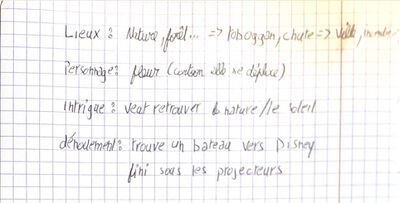 Lieux : Nature, forêt... => toboggan, chute => ville,
Personnage : fleur (cartoon elle se déplace)
intrigue : veut retrouver la nature / le soleil
dénouement : trouve un bateau vers Disney
fini sous les projecteurs